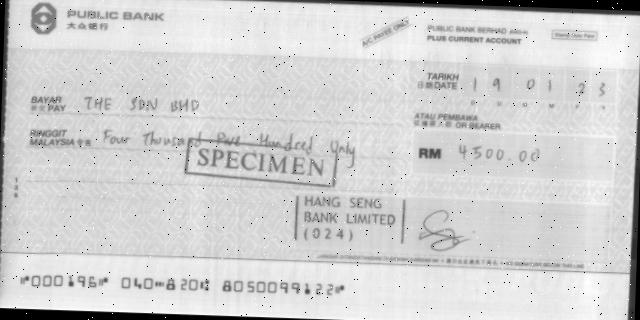 PUBLIC BANK
大众银行
A/C PAYEE ONLY
PUBLIC BANK BERHAD
PLUS CURRENT ACCOUNT
Stamp Duty Paid
TARIKH
日期 DATE 1 9 0 1 2 3
D D M M Y Y
BAYAR
PAY THE SDN BHD
ATAU PEMBAWA
OR BEARER
RINGGIT
MALAYSIA Four Thousand Five Hundred Only
RM 4500.00
SPECIMEN
HANG SENG
BANK LIMITED
(024)
⑈000196⑈ 040⑉820⑆ 8050099122⑈